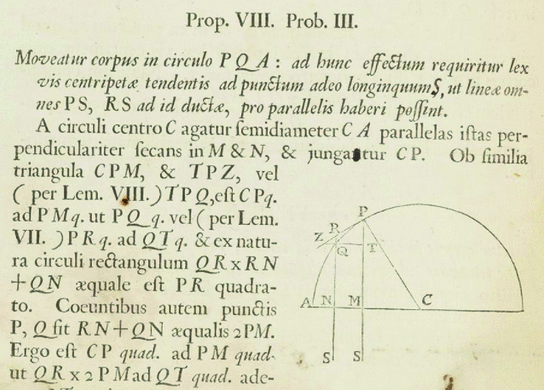 Prop. VIII. Prob. III.
Moveatur corpus in circulo PQA: ad hunc effectum requiritur lex
vis centripetæ tendentis ad punctum adeo longinquum S, ut lineæ om-
nes PS, RS ad id ductæ, pro parallelis haberi possint.
A circuli centro C agatur semidiameter CA parallelas istas per-
pendiculariter secans in M & N, & jungatur CP. Ob similia
triangula CPM, & TPZ, vel
(per Lem. VIII.) TPQ, est CPq.
ad PMq. ut PQq. vel (per Lem.
VII.) PRq. ad QTq. & ex natu-
ra circuli rectangulum QR x RN
+QN æquale est PR quadra-
to. Coeuntibus autem punctis
P, Q fit RN+QN æqualis 2PM.
Ergo est CP quad. ad PM quad.
ut QR x 2PM ad QT quad. ade-
P
R
Z
Q
T
A
N
M
C
S
S